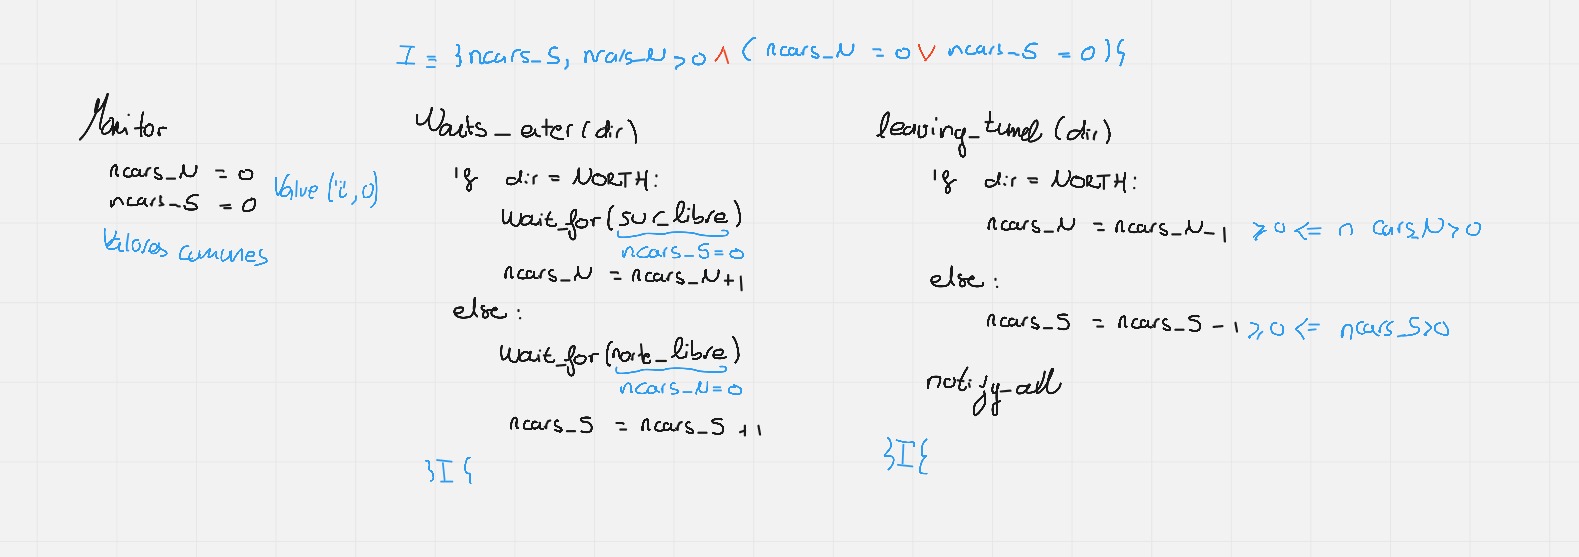 I ≡ }ncars_S, ncars_N ⩾ 0 ∧ ( ncars_N = 0 ∨ ncars_S = 0){
Monitor
ncars_N = 0
ncars_S = 0
Value ('i', 0)
Valores comunes
Waits_eter(dir)
if dir = NORTH:
wait_for(sur_libre)
ncars_S = 0
ncars_N = ncars_N+1
else:
wait_for(norte_libre)
ncars_N = 0
ncars_S = ncars_S +1
}I{
leaving_tunnel (dir)
if dir = NORTH:
ncars_N = ncars_N-1 ⩾ 0 <= n cars_N > 0
else:
ncars_S = ncars_S - 1 ⩾ 0 <= ncars_S > 0
notify_all
}I{